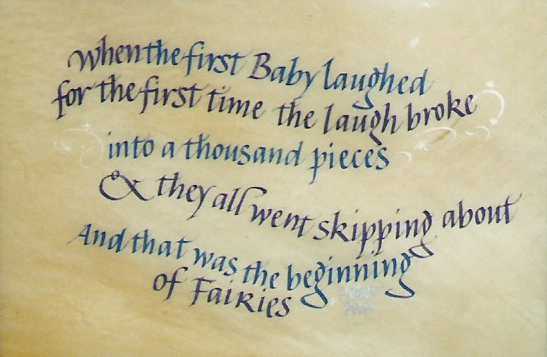 when the first Baby laughed
for the first time the laugh broke
into a thousand pieces
& they all went skipping about
And that was the beginning
of Fairies